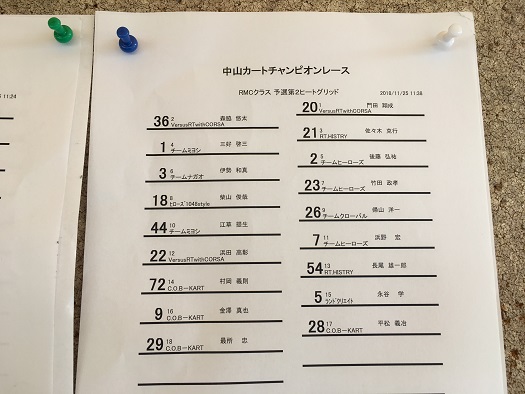 11:24
中山カートチャンピオンレース
RMCクラス 予選第2ヒートグリッド
2018/11/25 11:38
20 1 門田 翔成
VersusRTwithCORSA
36 2 森脇 悠太
VersusRTwithCORSA
21 3 佐々木 克行
RT.HISTRY
1 4 三好 啓三
チームミヨシ
2 5 後藤 弘祐
チームヒーローズ
3 6 伊勢 和真
チームナガオ
23 7 竹田 政孝
チームヒーローズ
18 8 柴山 俊哉
ヒーローズ1048style
26 9 横山 洋一
チームクローバル
44 10 江草 部生
チームミヨシ
7 11 浜野 宏
チームヒーローズ
22 12 浜田 高彰
VersusRTwithCORSA
54 13 長尾 雄一郎
RT.HISTRY
72 14 村岡 義則
C.O.B-KART
5 15 永谷 学
ランドクリエイト
9 16 金澤 真也
C.O.B-KART
28 17 平松 義治
C.O.B-KART
29 18 最所 忠
C.O.B-KART